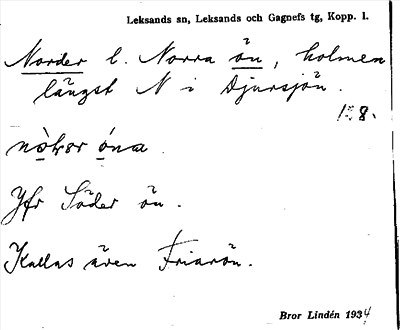 Leksands sn, Leksands och Gagnefs tg, Kopp. l.
Norder l. Norra ön, holmen
längst N i Djursjön.
1:8.
nòṭər óna
Jfr Söder ön.
Kallas även Friarön.
Bror Lindén 1934